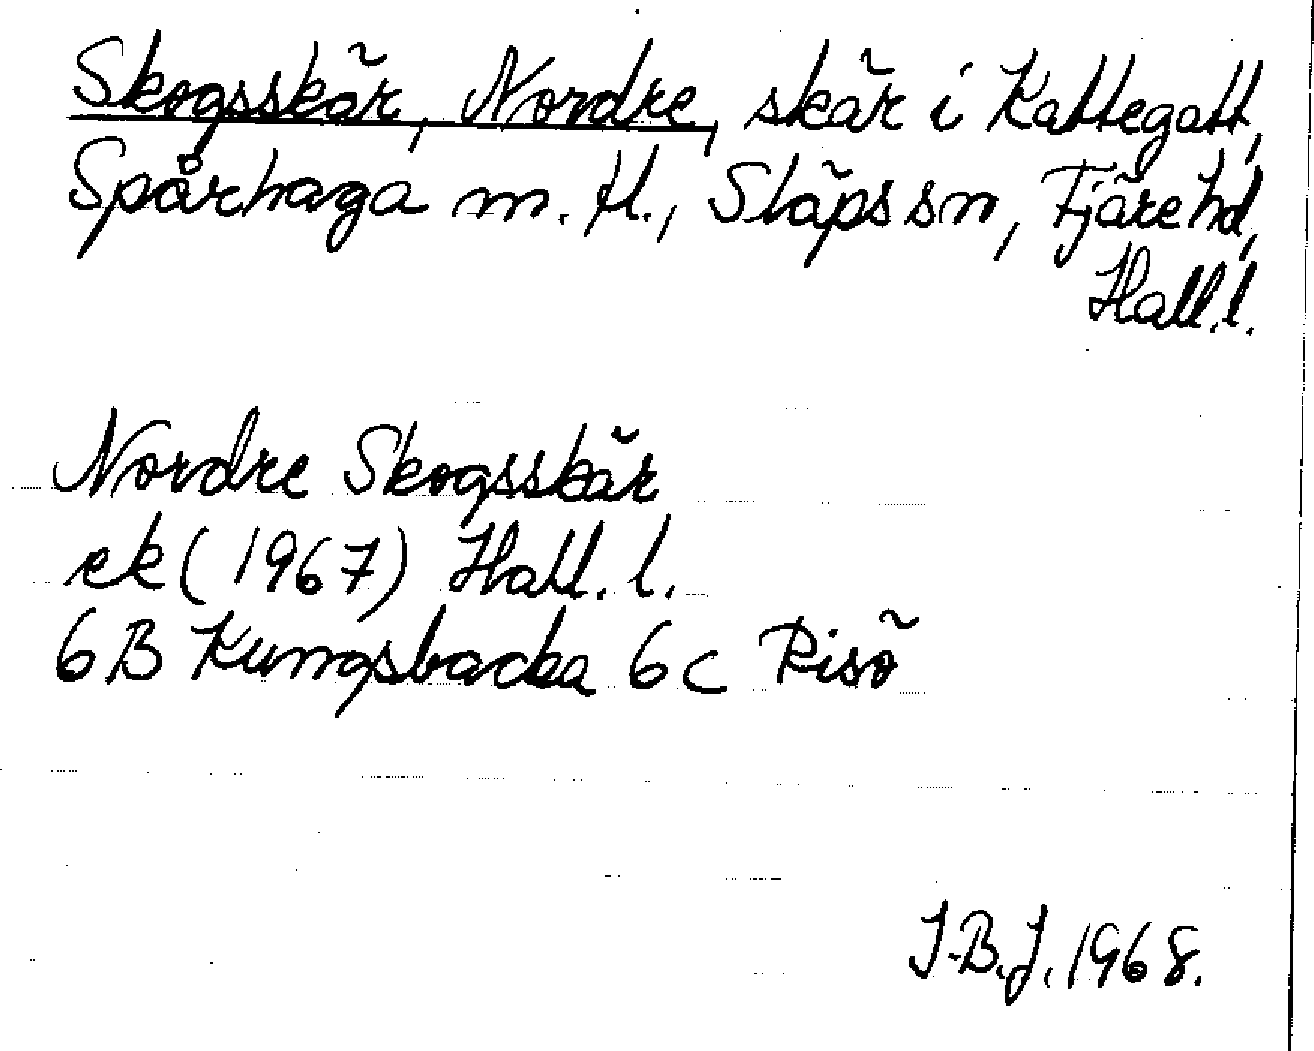 Skogsskär, Nordre, skär i Kattegatt,
Spårhaga m. fl., Släps sn, Fjäre hd,
Hall.l.
Nordre Skogsskär
ek (1967) Hall. l.
6B Kungsbacka 6c Risö
J-B.J. 1968.